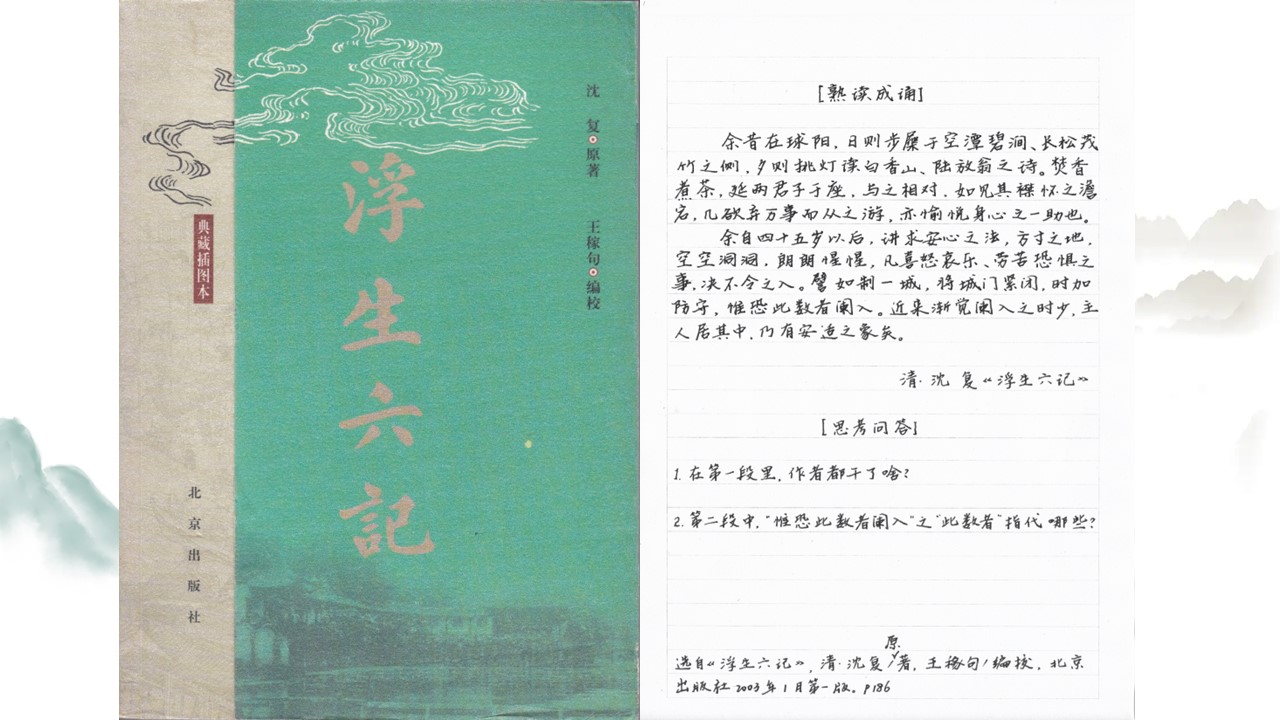 沈复·原著
王稼句·编校
浮生六記
典藏插图本
北京出版社
[熟读成诵]
余昔在球阳,日则步屧于空潭碧涧、长松茂
竹之侧,夕则挑灯读白香山、陆放翁之诗。焚香
煮茶,延两君子于座,与之相对,如见其襟怀之澹
宕,几欲弃万事而从之游,亦愉悦身心之一助也。
余自四十五岁以后,讲求安心之法,方寸之地,
空空洞洞,朗朗惺惺,凡喜怒哀乐、劳苦恐惧之
事,决不令之入。譬如制一城,将城门紧闭,时加
防守,惟恐此数者阑入。近来渐觉阑入之时少,主
人居其中,乃有安适之象矣。
清·沈复《浮生六记》
[思考问答]
1.在第一段里,作者都干了啥?
2.第二段中,"惟恐此数者阑入"之"此数者"指代哪些?
选自《浮生六记》,清·沈复/原著,王稼句/编校,北京
出版社2003年1月第一版。P186